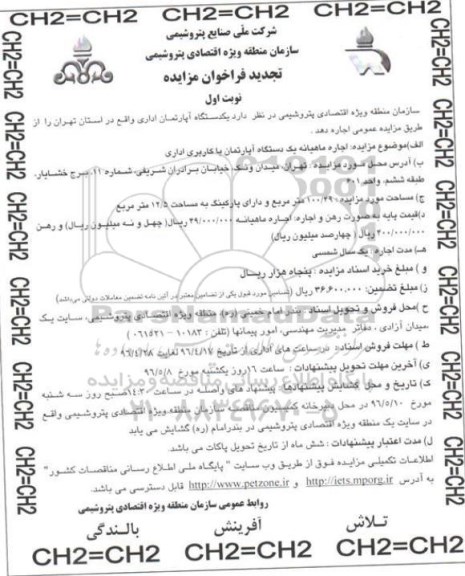 CH2=CH2 CH2=CH2 CH2=CH2 CH2=CH2
شرکت ملّی صنایع پتروشیمی
سازمان منطقه ویژه اقتصادی پتروشیمی
تجدید فراخوان مزایده
نوبت اول
سازمان منطقه ویژه اقتصادی پتروشیمی در نظر دارد یکدستگاه آپارتمان اداری واقع در استان تهران را از
طریق مزایده عمومی اجاره دهد.
الف)موضوع مزایده: اجاره ماهیانه یک دستگاه آپارتمان با کاربری اداری
ب) آدرس محل مورد مزایده: تهران، میدان ونک، خیابان برادران شریفی، شماره ۱۱، برج خشایار،
طبقه ششم، واحد
ج) مساحت مورد مزایده: ۱۰۰/۴۹ متر مربع و دارای پارکینگ به مساحت ۱۲/۵ متر مربع
د)قیمت پایه به صورت رهن و اجاره: اجاره ماهیانه ۴۹/۰۰۰/۰۰۰ ریال( چهل و نه میلیون ریال) و رهن
۴۰۰/۰۰۰/۰۰۰ ریال ( چهارصد میلیون ریال)
هـ) مدت اجاره: یک سال شمسی
و ) مبلغ خرید اسناد مزایده : پنجاه هزار ریال
ز) مبلغ تضمین: ۳۶.۶۰۰.۰۰۰ ریال (تضامین مورد قبول یکی از تضامین معتبر در آئین نامه تضمین معاملات دولتی می‌باشد)
ح )محل فروش و تحویل اسناد: بندر امام خمینی (ره) منطقه ویژه اقتصادی پتروشیمی، سایت یک
میدان آزادی، دفاتر مدیریت مهندسی، امور پیمانها (تلفن: ۱۰۱۸۳ - ۰۶۱۵۲۱)
ط ) مهلت فروش اسناد: در ساعت های اداری از تاریخ ۹۶/۴/۱۷ لغایت ۹۶/۴/۲۸
ی) آخرین مهلت تحویل پیشنهادات : ساعت ۱۶روز یکشنبه مورخ ۹۶/۵/۸
ک) تاریخ و محل گشایش پیشنهادات: پیشنهاد های واصله در ساعت ۱۴:۳۰صبح روز سه شنبه
مورخ ۹۶/۵/۱۰ در محل دبیرخانه کمیسیون مناقصات سازمان منطقه ویژه اقتصادی پتروشیمی واقع
در سایت یک منطقه ویژه اقتصادی پتروشیمی در بندرامام (ره) گشایش می یابد
ل) مدت اعتبار پیشنهادات : شش ماه از تاریخ تحویل پاکات می باشد.
اطلاعات تکمیلی مزایده فوق از طریق وب سایت " پایگاه ملی اطلاع رسانی مناقصات کشور"
به آدرس http://iets.mporg.ir و http://www.petzone.ir قابل دسترسی می باشد.
روابط عمومی سازمان منطقه ویژه اقتصادی پتروشیمی
تـلاش آفرینش بالنـدگی
CH2=CH2 CH2=CH2 CH2=CH2 CH2=CH2